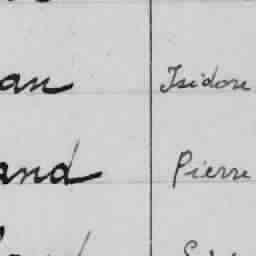 an Isidore
and Pierre